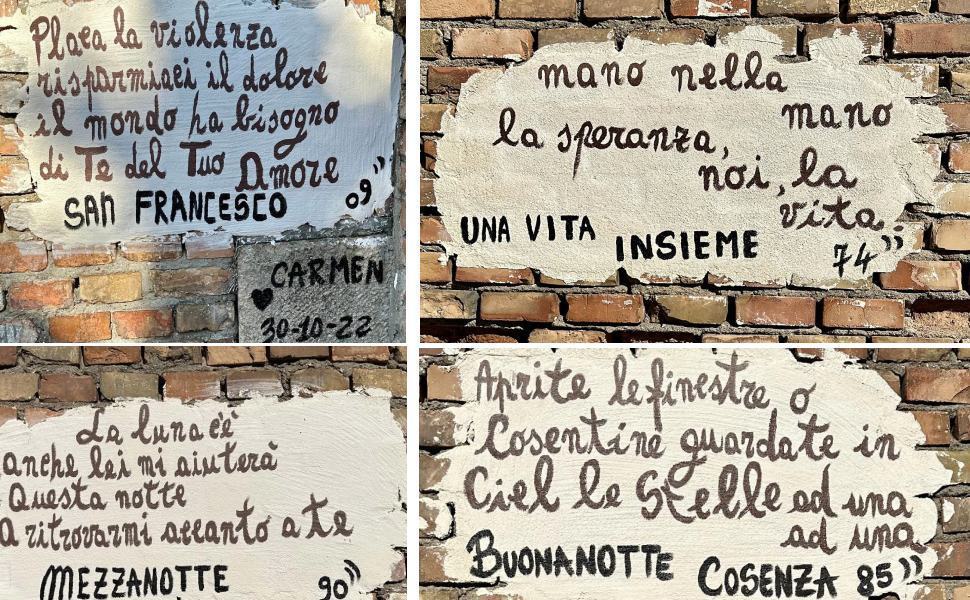 Placa la violenza
risparmiaci il dolore
il mondo ha bisogno
di Te del Tuo Amore
SAN FRANCESCO 09"
CARMEN
♥
30-10-22
mano nella
mano
la speranza,
noi, la
vita.
UNA VITA INSIEME 74"
La luna c'è
anche lei mi aiuterà
Questa notte
a ritrovarmi accanto a te
MEZZANOTTE 90"
Aprite le finestre o
Cosentine guardate in
Ciel le Stelle ad una
ad una
BUONANOTTE COSENZA 85"